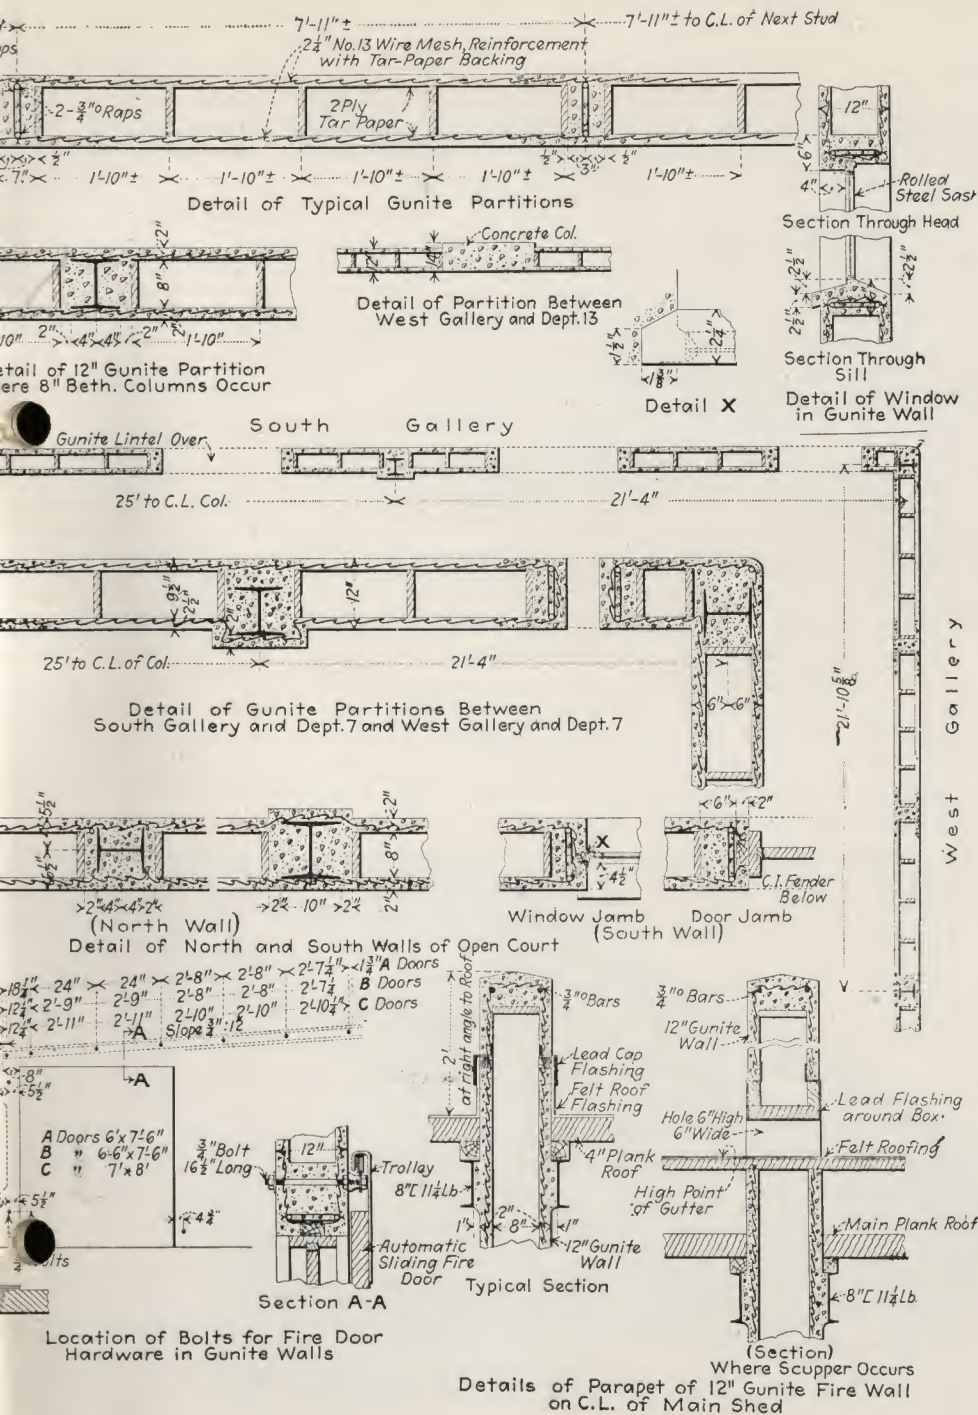 7'-11"±
7'-11"± to C.L. of Next Stud
2¼" No.13 Wire Mesh, Reinforcement
with Tar-Paper Backing
2-¾"o Raps
2 Ply
Tar Paper
½"
7"
1'-10"±
1'-10"±
1'-10"±
1'-10"±
½"
3"
½"
1'-10"±
Detail of Typical Gunite Partitions
12"
6"
4"
Rolled
Steel Sash
Section Through Head
2"
8"
2"
2"
4"
4"
2"
1'-10"
Detail of 12" Gunite Partition
Where 8" Beth. Columns Occur
Concrete Col.
12"
14"
Detail of Partition Between
West Gallery and Dept.13
1½"
2¼"
1⅜"
Detail X
2½"
2½"
2½"
Section Through
Sill
Detail of Window
in Gunite Wall
South Gallery
Gunite Lintel Over
25' to C.L. Col.
21'-4"
21'-10⅝"
West Gallery
9½"
2½"
2"
12"
25' to C.L. of Col.
21'-4"
6" 6"
Detail of Gunite Partitions Between
South Gallery and Dept.7 and West Gallery and Dept.7
5½"
6½"
2" 4" 4" 2"
2" 10" 2"
2"
8"
2"
(North Wall)
Detail of North and South Walls of Open Court
X
4½"
Window Jamb
6" 2"
C.I. Fender
Below
Door Jamb
(South Wall)
18¼" 24" 24" 2'-8" 2'-8" 2'-7¼" 1¾" A Doors
12¼" 2'-9" 2'-9" 2'-8" 2'-8" 2'-7¼ B Doors
12¼" 2'-11" 2'-11" 2'-10" 2'-10" 2'-10¼" C Doors
Slope ¾":12"
A
A
8"
5½"
A Doors 6'x7'-6"
B " 6'-6"x7'-6"
C " 7'x8'
5½"
4¾"
Location of Bolts for Fire Door
Hardware in Gunite Walls
¾" Bolt
16½" Long
12"
Trolley
Automatic
Sliding Fire
Door
Section A-A
2'
at right angle to Roof
¾"o Bars
Lead Cap
Flashing
Felt Roof
Flashing
4" Plank
Roof
8"[ 11¼ Lb.
1" 2" 8" 1"
12" Gunite
Wall
Typical Section
¾"o Bars
12" Gunite
Wall
Lead Flashing
around Box.
Hole 6" High
6" Wide
Felt Roofing
High Point
of Gutter
Main Plank Roof
8"[ 11¼ Lb.
(Section)
Where Scupper Occurs
Details of Parapet of 12" Gunite Fire Wall
on C.L. of Main Shed